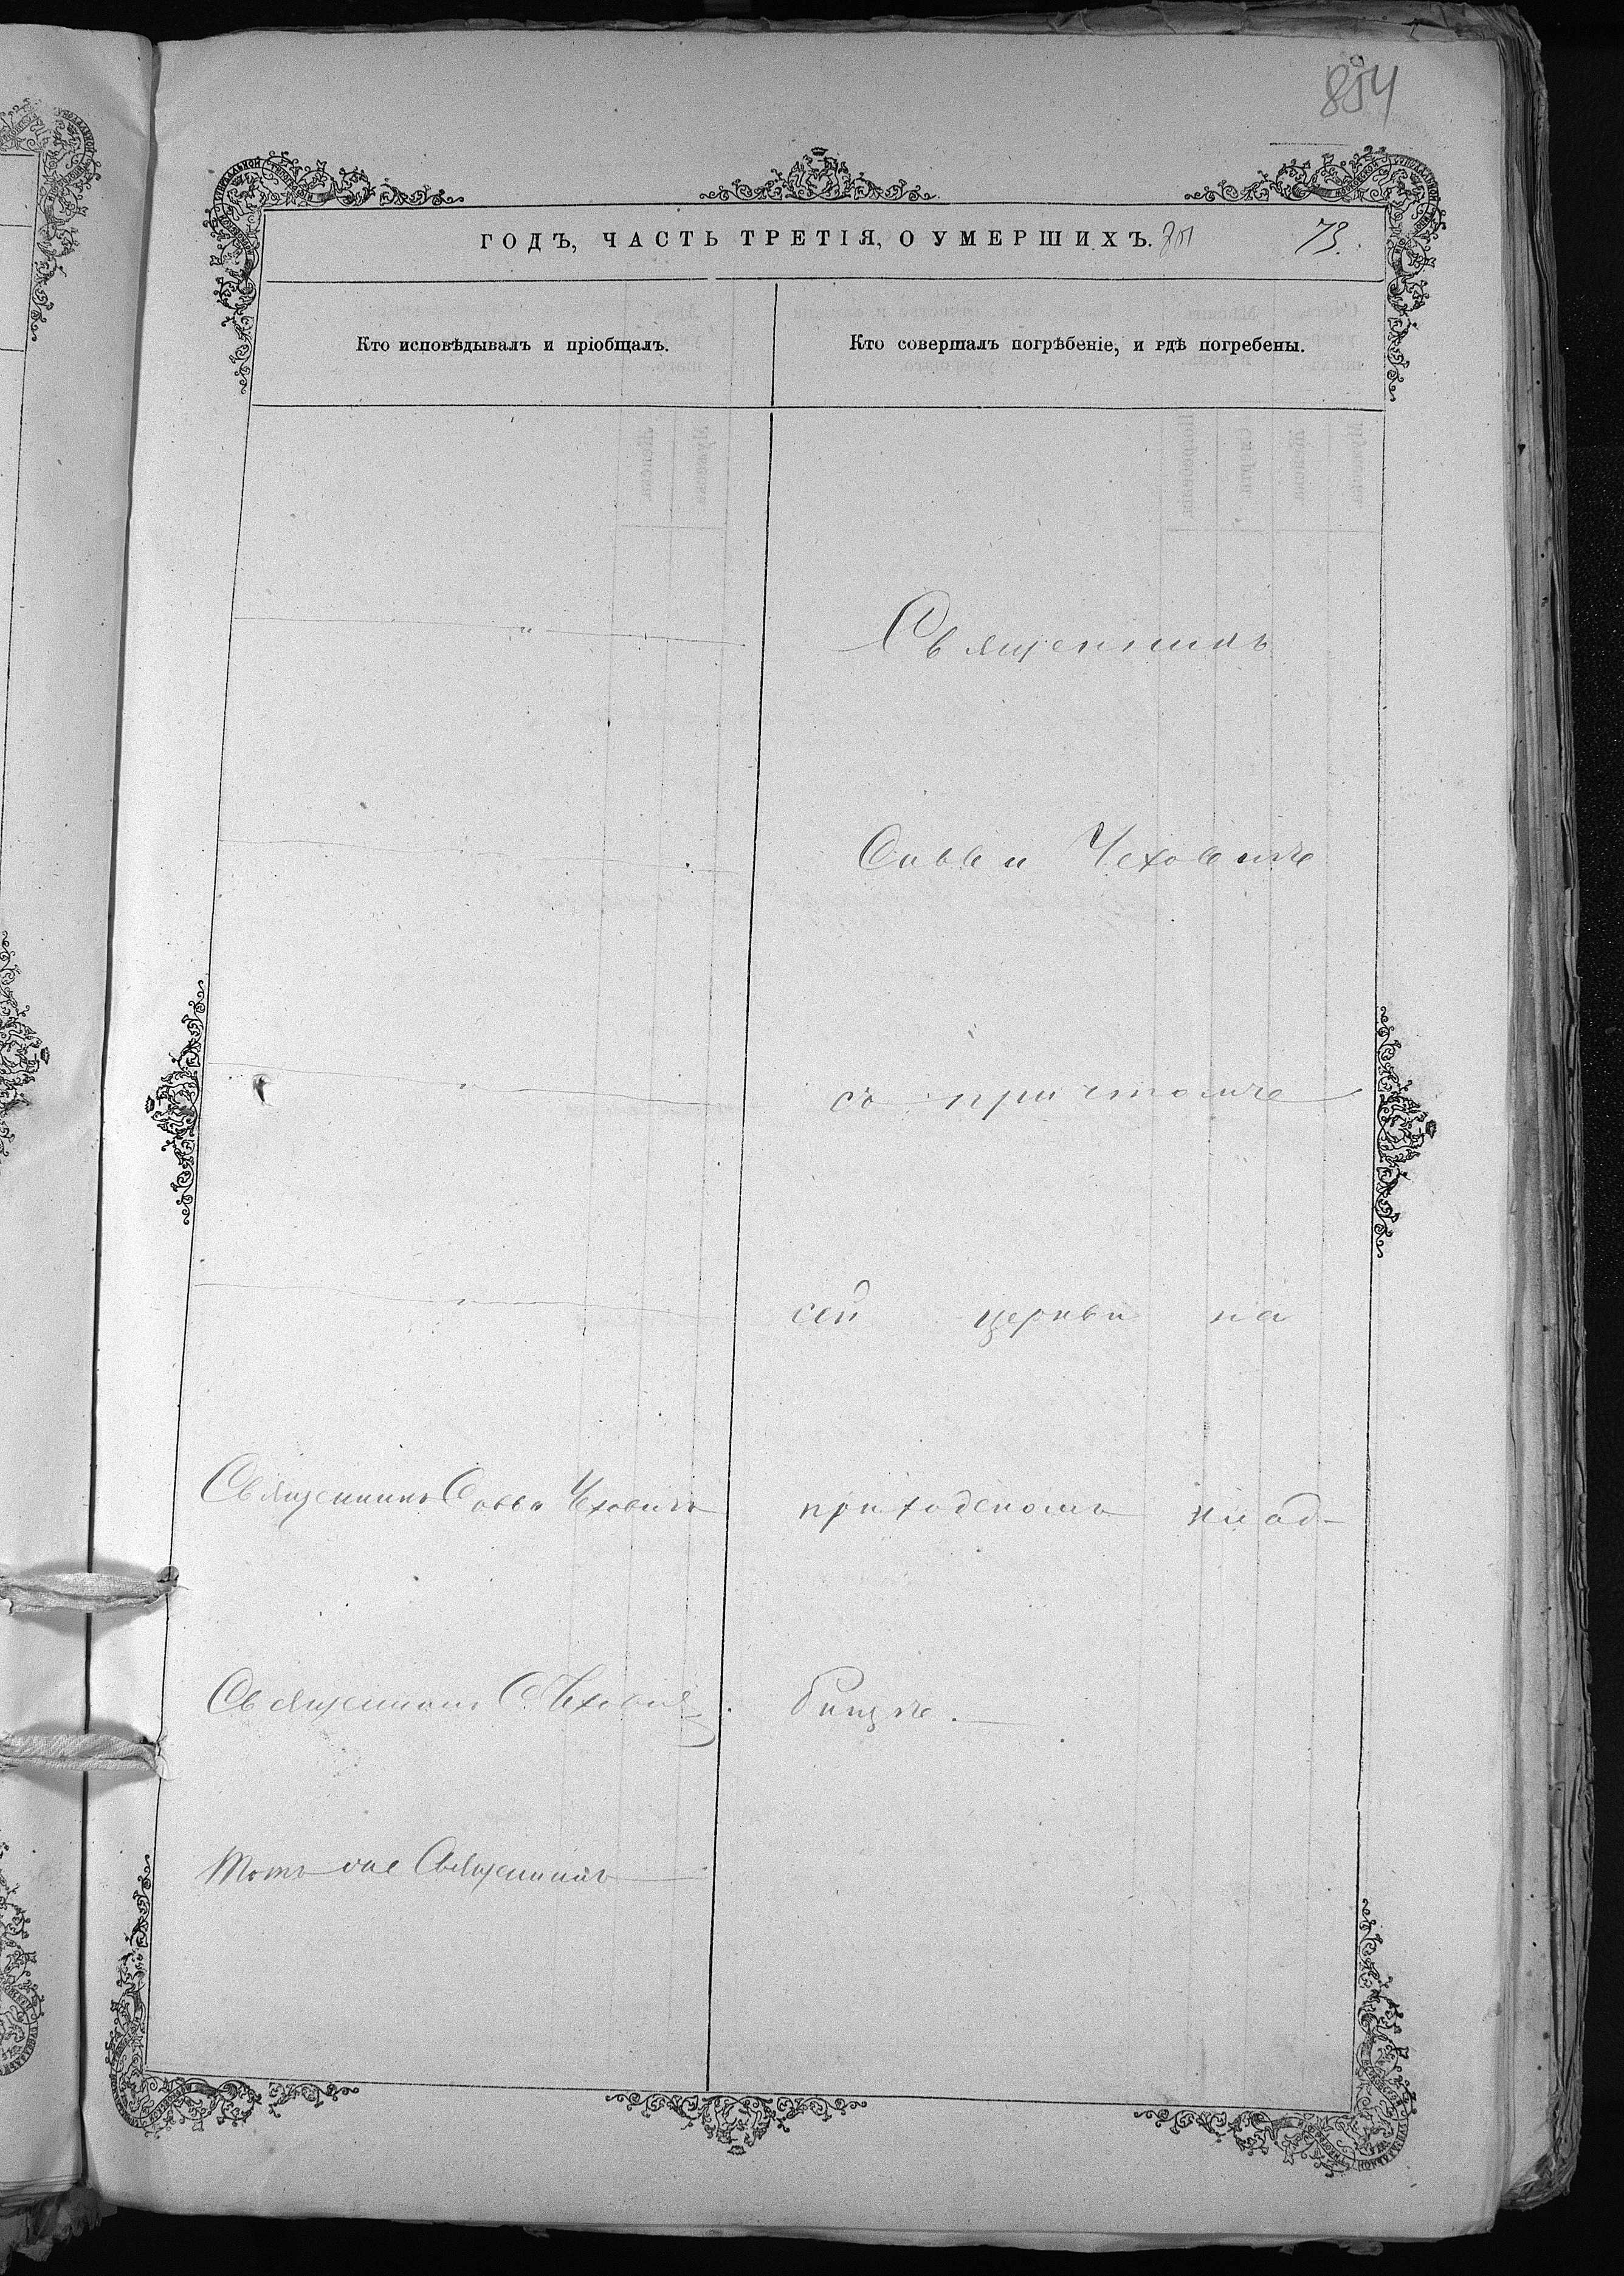 854
ГОДЪ, ЧАСТЬ ТРЕТІЯ, О УМЕРШИХЪ. 73.
Кто исповѣдывалъ и пріобщалъ.
Кто совершалъ погрѣбеніе, и гдѣ погребены.
Священникъ
Савва Чеховичъ
съ причтомъ
сей церкви на
Священникъ Савва Чеховичъ
приходскомъ клад-
Священникъ С. Чехович
бищѣ.
Тотъ же Священникъ